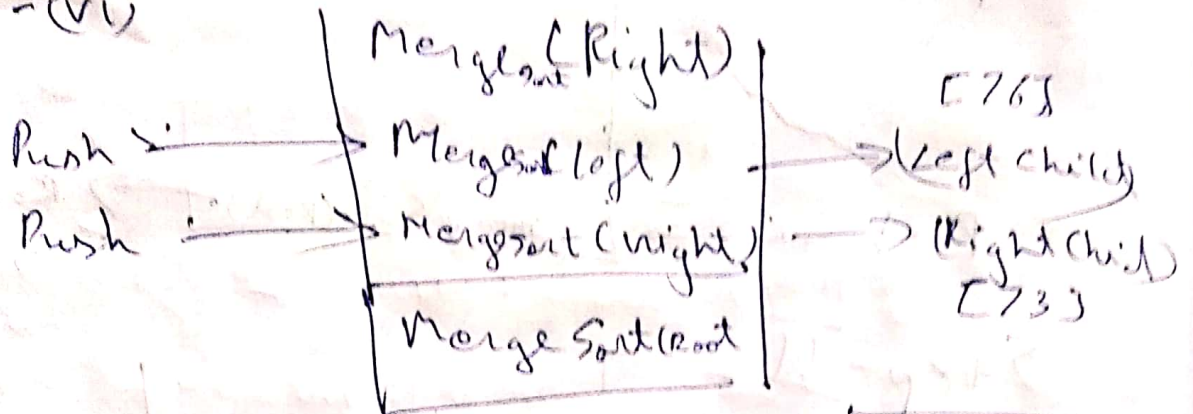 -(VI)
Mergesort (Right)
[76]
Push Mergesort (left) (Left Child)
Push Mergesort (right) (Right Child)
[73]
Merge Sort (Root